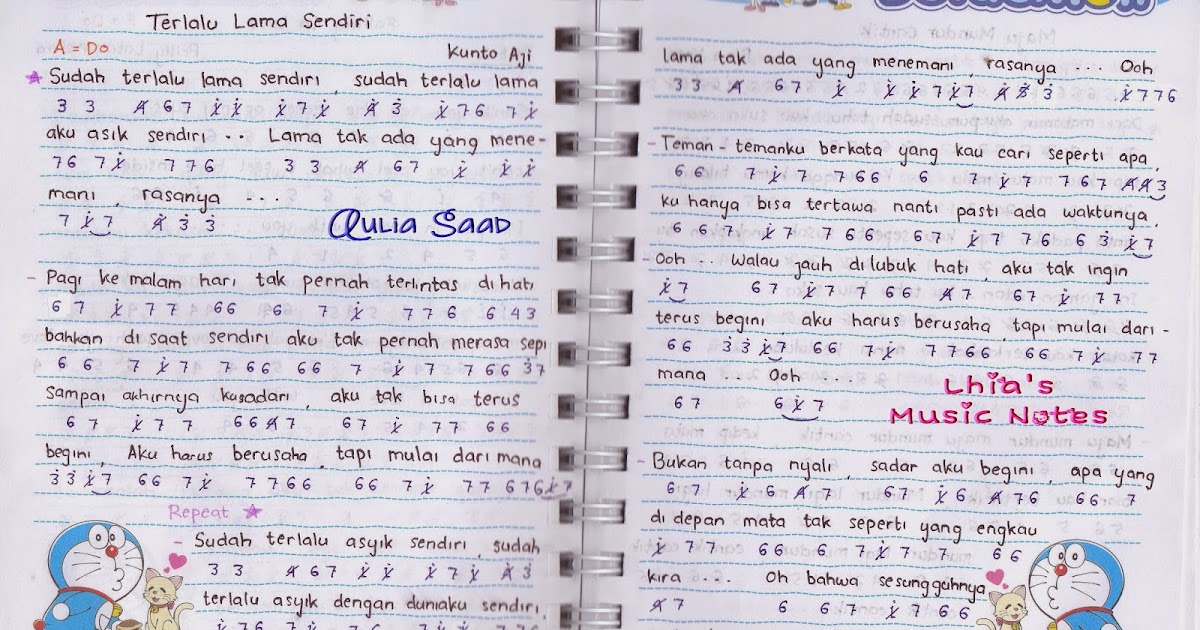 Terlalu Lama Sendiri
A = Do
Kunto Aji
Sudah terlalu lama sendiri, sudah terlalu lama
3 3 4̸ 6 7 1̸̇ 1̸̇ 1̸̇ 7 1̸̇ 4̸̇ 3̇ 1̸̇ 7 6 7 1̸̇
aku asik sendiri .. Lama tak ada yang mene-
7 6 7 1̸̇ 7 7 6 3 3 4̸ 6 7 1̸̇ 1̸̇ 1̸̇
mani, rasanya ...
7 1̸̇ 7 4̸̇ 3̇ 3̇
Aulia Saad
- Pagi ke malam hari tak pernah terlintas di hati
6 7 1̸̇ 7 7 6 6 6 7 1̸̇ 7 7 6 6 4 3
bahkan disaat sendiri aku tak pernah merasa sepi
6 6 7 1̸̇ 7 7 6 6 6 6 7 1̸̇ 7 7 6 6 3̇ 7
Sampai akhirnya kusadari, aku tak bisa terus
6 7 1̸̇ 7 7 6 6 4̸ 7 6 7 1̸̇ 7 7 6 6
begini, Aku harus berusaha, tapi mulai dari mana
3̇ 3̇ 1̸̇ 7 6 6 7 1̸̇ 7 7 6 6 6 6 7 1̸̇ 7 7 6 7 6 1̸̇ 7
Repeat ★
- Sudah terlalu asyik sendiri, sudah
3 3 4̸ 6 7 1̸̇ 1̸̇ 1̸̇ 7 1̸̇ 4̸̇ 3̇
terlalu asyik dengan duniaku sendiri,
lama tak ada yang menemani, rasanya .... Ooh
3 3 4̸ 6 7 1̸̇ 1̸̇ 1̸̇ 7 1̸̇ 7 4̸̇ 3̇ 3̇ 1̸̇ 7 7 6
- Teman-temanku berkata yang kau cari seperti apa,
6 6 7 1̸̇ 7 7 6 6 6 7 1̸̇ 7 7 6 7 4̸ 4̸ 3
ku hanya bisa tertawa nanti pasti ada waktunya,
6 6 7 1̸̇ 7 7 6 6 6 7 1̸̇ 7 7 6 6 3̇ 1̸̇ 7
- Ooh .. Walau jauh dilubuk hati, aku tak ingin
1̸̇ 7 6 7 1̸̇ 7 7 6 6 4̸ 7 6 7 1̸̇ 7 7
terus begini, aku harus berusaha, tapi mulai dari-
6 6 3̇ 3̇ 1̸̇ 7 6 6 7 1̸̇ 7 7 6 6 6 6 7 1̸̇ 7 7
mana .. Ooh ...
6 7 6 1̸̇ 7
Lhia's
Music Notes
- Bukan tanpa nyali, sadar aku begini, apa yang
6 7 1̸̇ 6 4̸ 7 6 7 1̸̇ 6 4̸ 7 6 6 6 7
di depan mata tak seperti yang engkau
1̸̇ 7 7 6 6 6 7 1̸̇ 7 7 6 6
kira ... Oh bahwa sesungguhnya
4̸ 7 6 6 7 1̸̇ 7 6 6